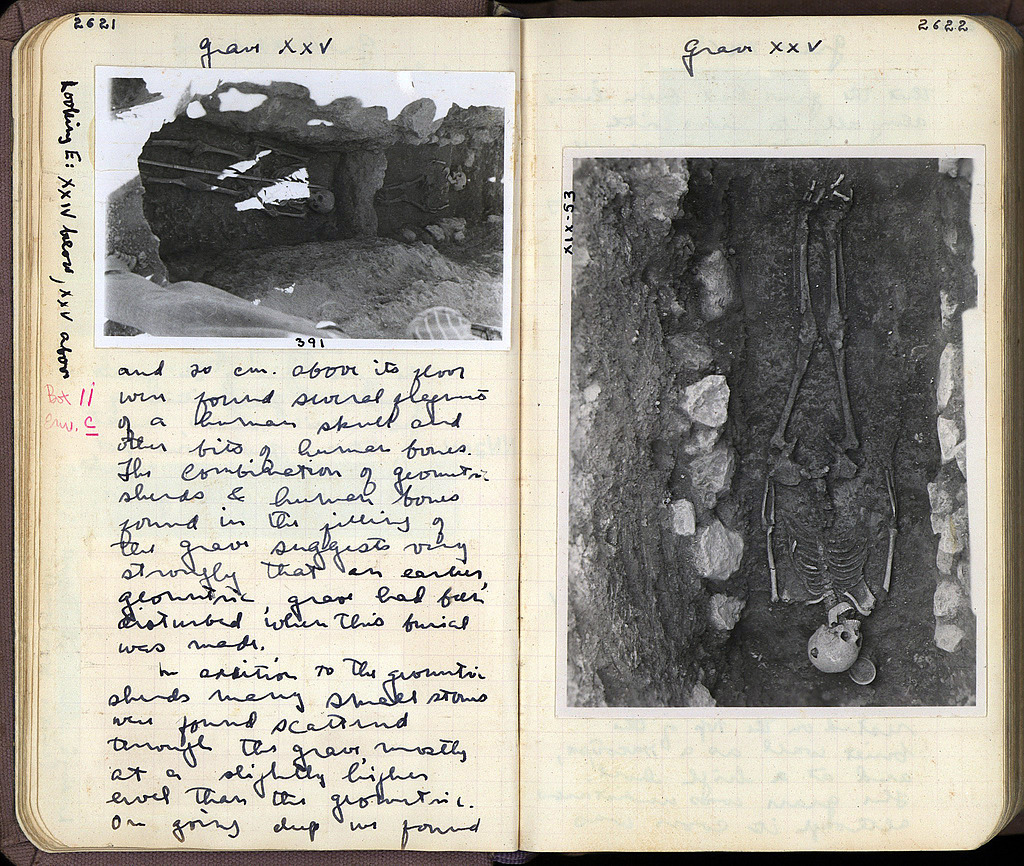 2621
Grave XXV
Looking E: XXIV below, XXV above
391
Box 11
Env. C
and 20 cm. above its floor
were found several fragments
of a human skull and
other bits of human bones.
The combination of geometric
sherds & human bones
found in the filling of
the grave suggests very
strongly that an earlier,
geometric, grave had been
disturbed when this burial
was made.
In addition to the geometric
sherds many small stones
were found scattered
through the grave, mostly
at a slightly higher
level than the geometric.
On going deep we found
2622
Grave XXV
XIX-53